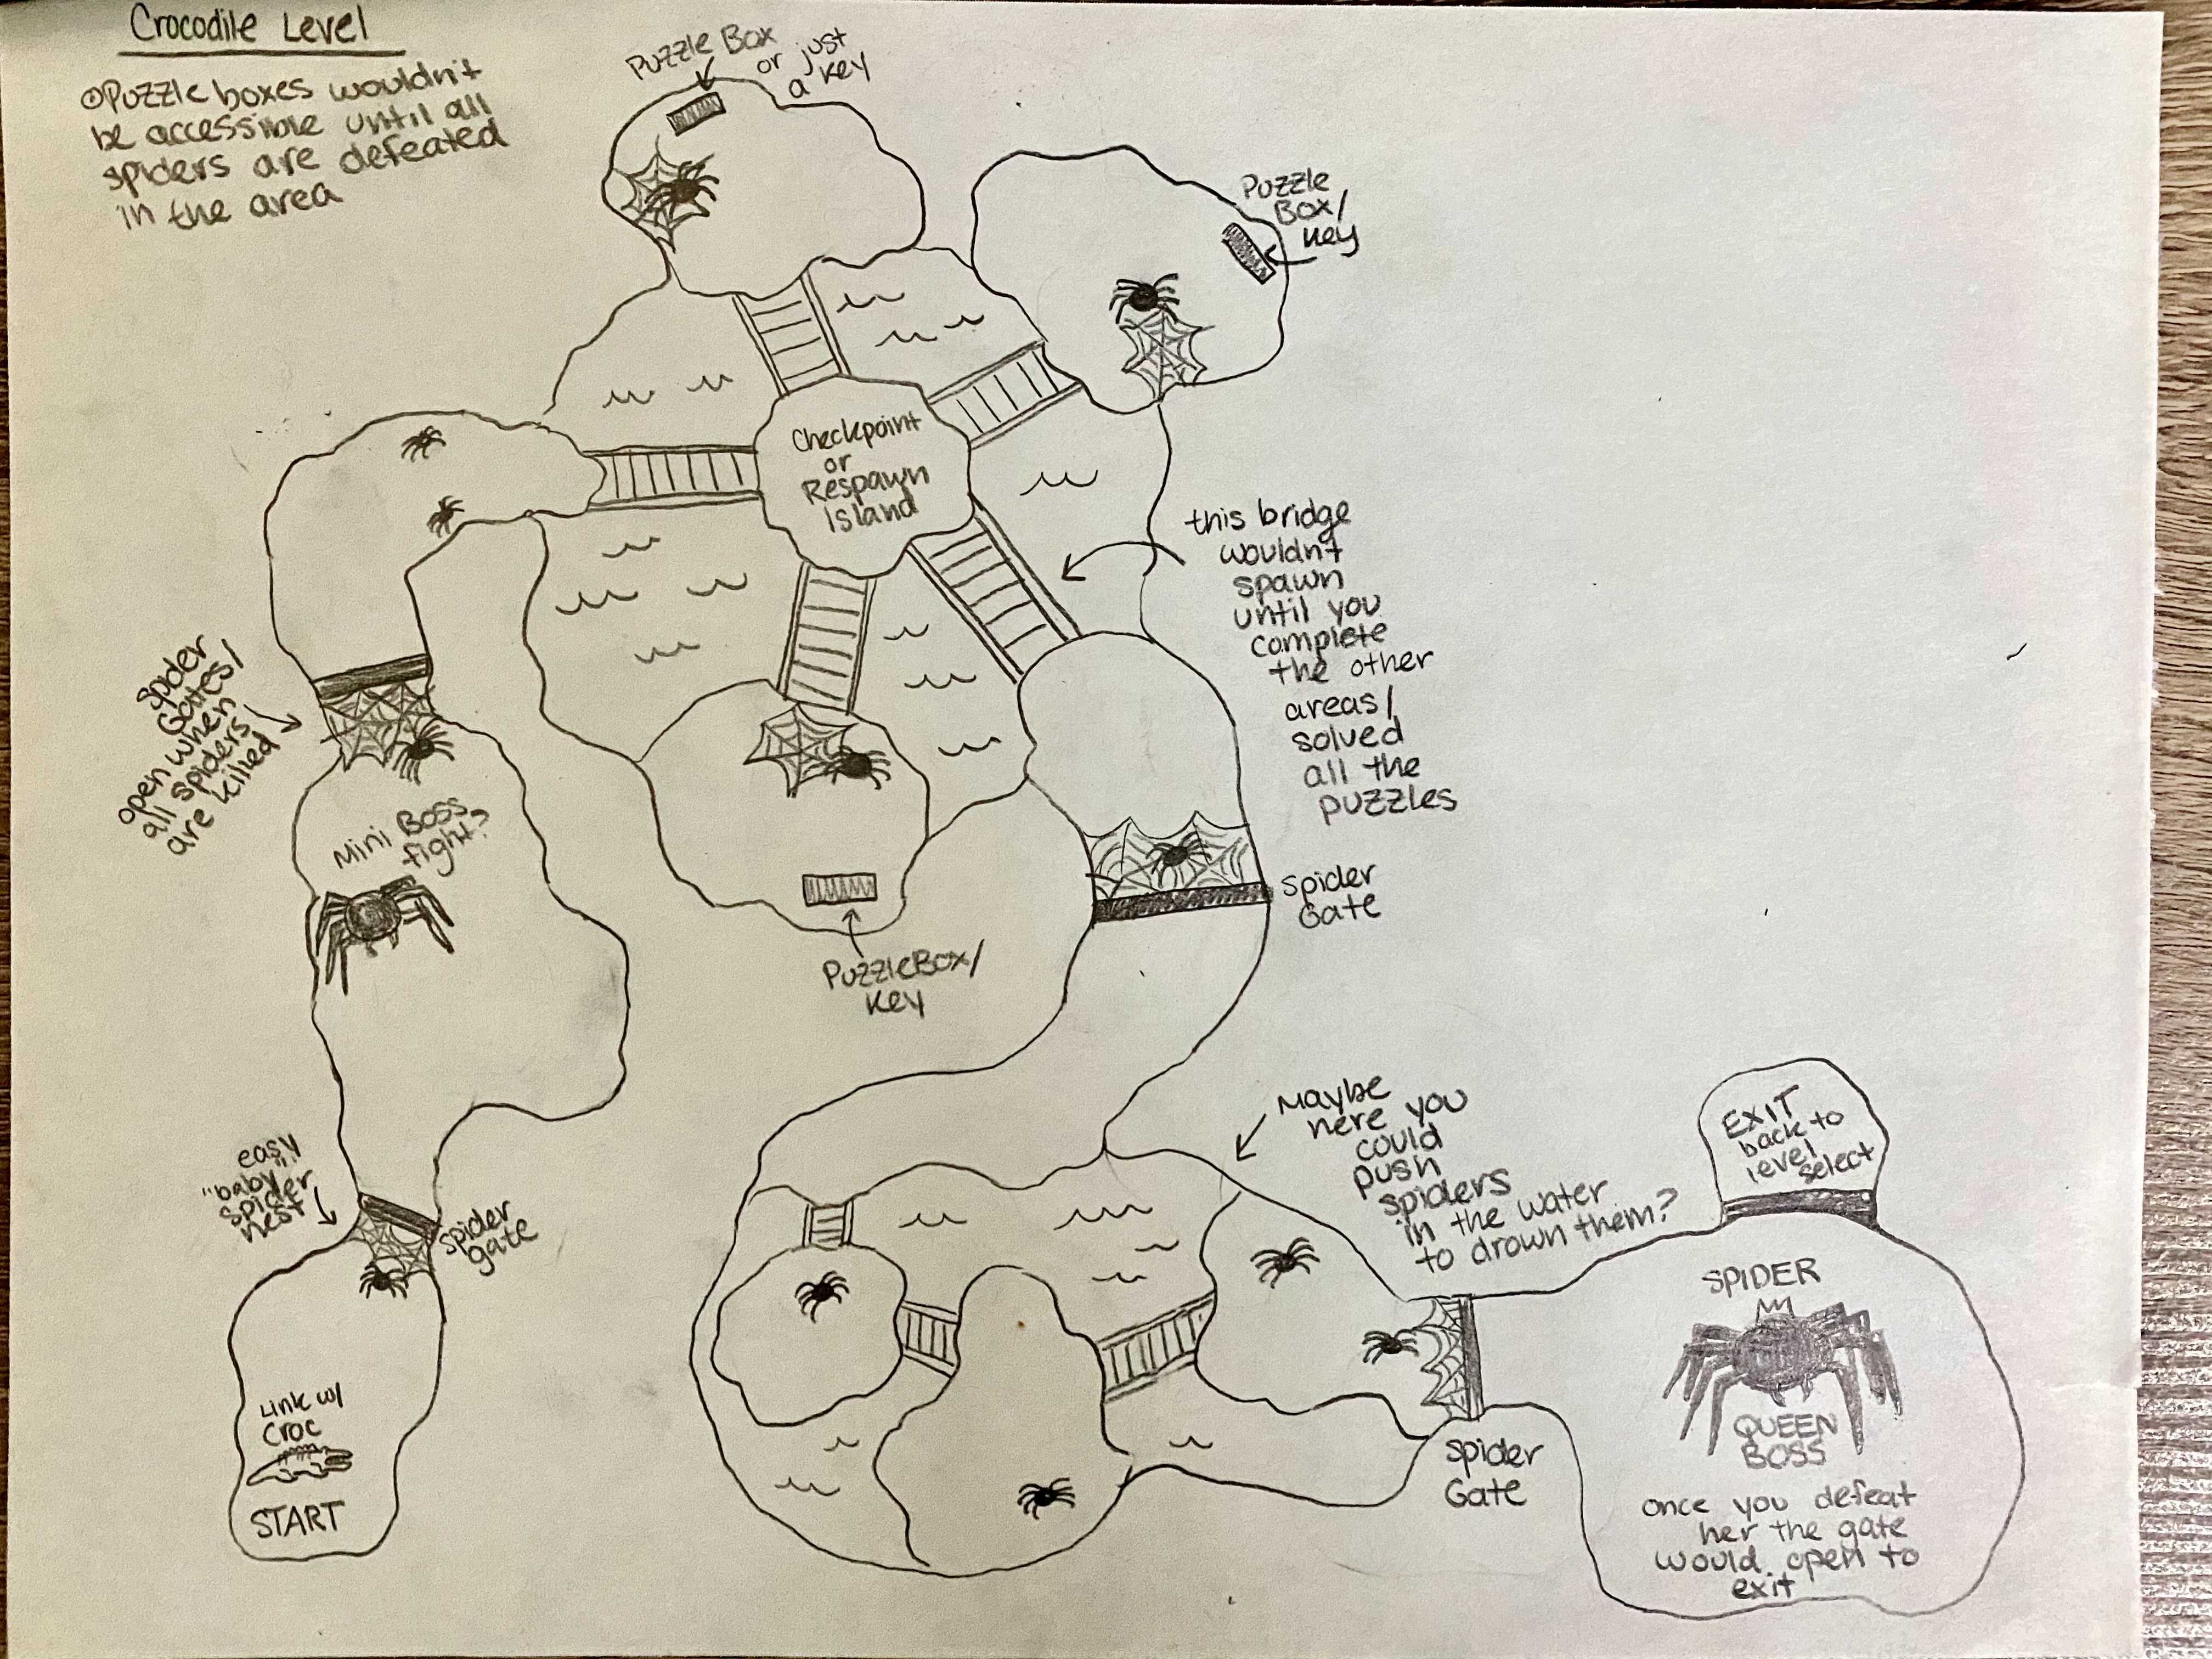 Crocodile Level
⊙Puzzle boxes wouldn't
be accessible until all
spiders are defeated
in the area
Puzzle Box
or just
a key
Puzzle
Box/
key
Checkpoint
or
Respawn
Island
this bridge
wouldn't
spawn
until you
complete
the other
areas/
solved
all the
puzzles
spider
Gates/
open when
all spiders
are killed
Mini Boss
fight?
Spider
Gate
PuzzleBox/
key
easy
"baby"
spider
nest
spider
gate
Link w/
Croc
START
Maybe
here you
could
push
spiders
in the water
to drown them?
EXIT
back to
level
select
SPIDER
QUEEN
BOSS
once you defeat
her the gate
would open to
exit
Spider
Gate